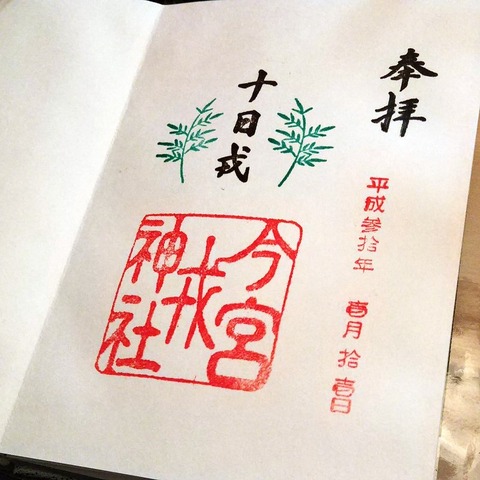 奉拝
平成参拾年 壱月拾壱日
十日戎
今宮
戎
神社